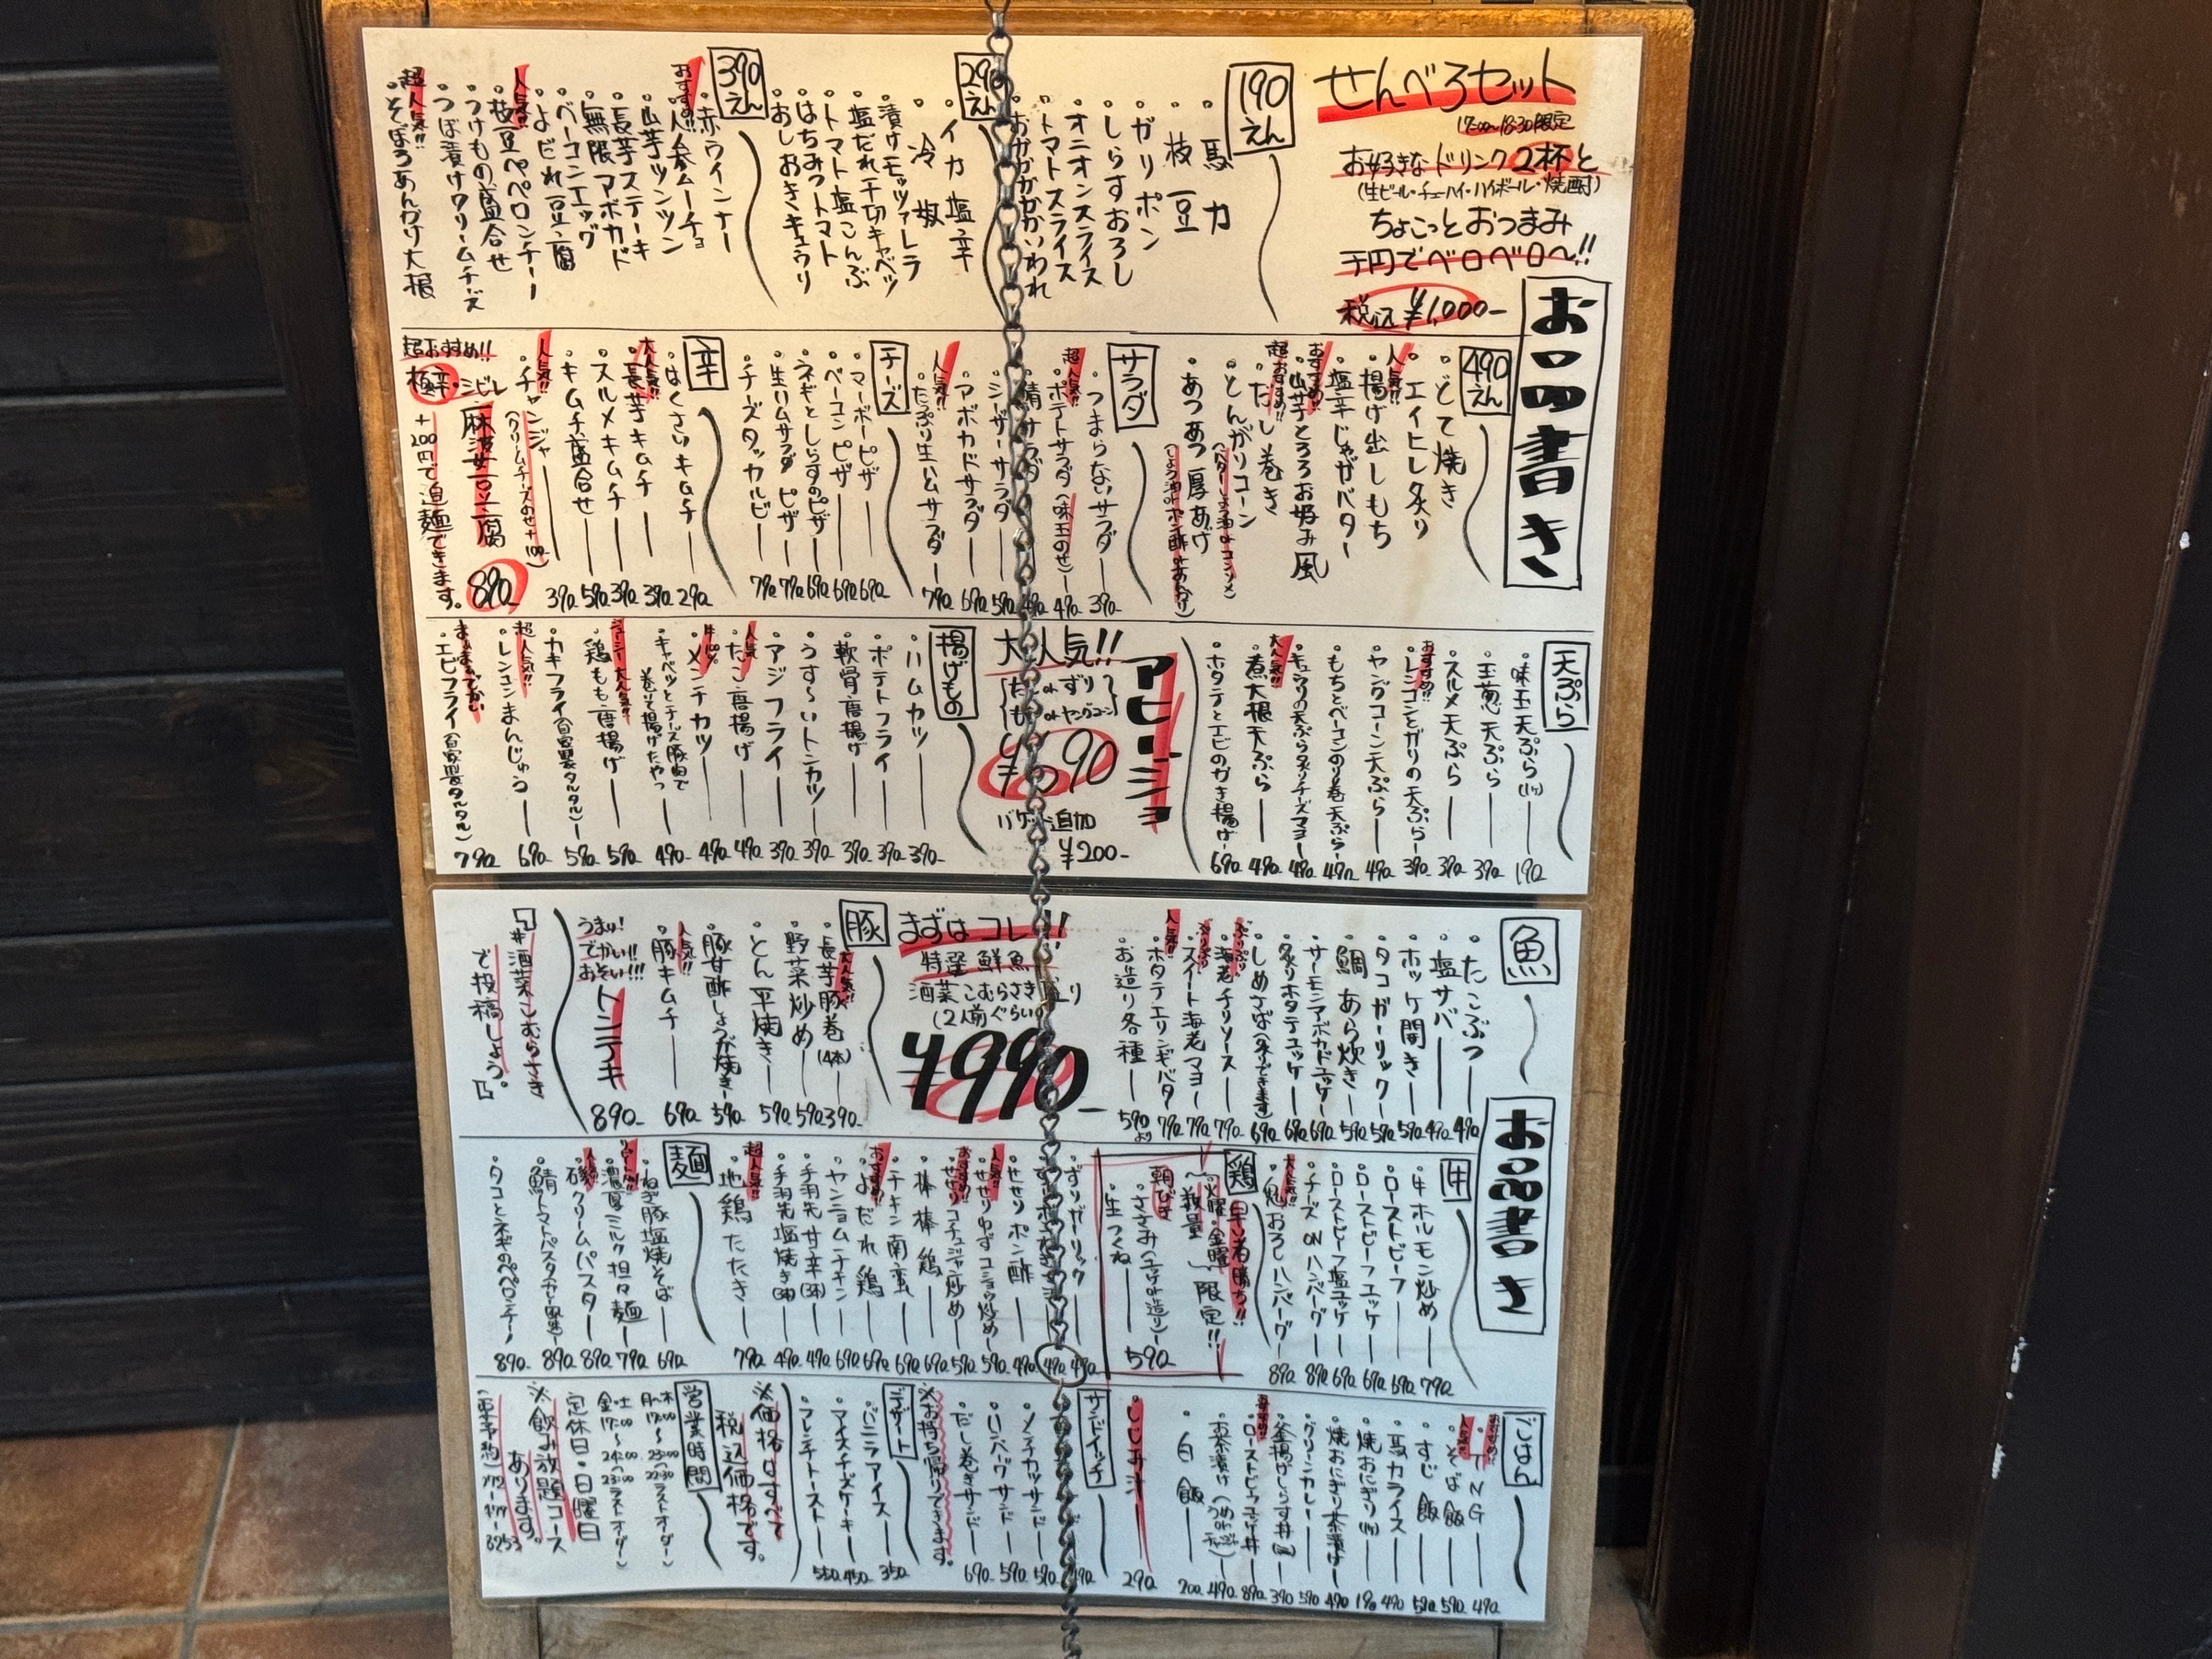 せんべろセット
17:00~18:30限定
お好きなドリンク2杯と
(生ビール・チューハイ・ハイボール・焼酎)
ちょこっとおつまみ
千円でベロベロ~!!
税込¥1,000-
お品書き
190えん
・馬力
・枝豆
・ガリポン
・しらすおろし
・オニオンスライス
・トマトスライス
・おかかかかかいわれ
290えん
・イカ塩辛
・冷奴
・漬けモッツァレラ
・塩だれ千切キャベツ
・トマト塩こんぶ
・はちみつトマト
・おしおきキュウリ
390えん
・赤ウインナー
おすすめ!!
・人参ムーチョ
・山芋ツンツン
・長芋ステーキ
・無限アボカド
・ベーコンエッグ
・よだれ豆腐
人気!!
・枝豆ペペロンチーノ
・つけもの盛合せ
・つぼ漬けクリームチーズ
超人気!!
・そぼろあんかけ大根
490えん
・どて焼き
・エイヒレ炙り
人気!!
・揚げ出しもち
・塩辛じゃがバター
おすすめ!!
・山芋とろろお好み風
超おすすめ!!
・だし巻き
・とんがりコーン
(バターしょう油orコンソメ)
・あつあつ厚あげ
サラダ
・つまらないサラダ 390-
超人気!!
・ポテトサラダ(味玉のせ) 490-
・鯖サラダ 490-
・シーザーサラダ 590-
・アボカドサラダ 690-
人気!!
・たっぷり生ハムサラダ 790-
チーズ
・マーボーピザ 690-
・ベーコンピザ 690-
・ネギとしらすのピザ 690-
・生ハムサラダピザ 790-
・チーズタッカルビ 790-
辛
・はくさいキムチ 290-
大人気!!
・長芋キムチ 390-
・スルメキムチ 390-
・キムチ盛合せ 590-
人気!!
・チャンジャ 390-
(クリームチーズのせ+100-)
超おすすめ!!
極辛・シビレ
麻婆豆腐
890-
+200円で追麺できます。
天ぷら
・味玉天ぷら(1ケ) 190-
・玉葱天ぷら 390-
・スルメ天ぷら 390-
おすすめ!!
・レンコンとガリの天ぷら 390-
・ヤングコーン天ぷら 490-
・もちとベーコンのり巻天ぷら 490-
・キュウリの天ぷら炙りチーズマヨ 490-
大人気!!
・煮大根天ぷら 490-
・ホタテとエビのかき揚げ 690-
アヒージョ
大人気!!
バゲット追加
¥200-
揚げもの
・ハムカツ 390-
・ポテトフライ 390-
・軟骨唐揚げ 390-
・うす~いトンカツ 390-
・アジフライ 390-
人気
・たこ唐揚げ 490-
牛100%
・メンチカツ 490-
・キャベツとチーズ豚肉で
巻いて揚げたやつ 490-
ジューシー大人気!!
・鶏もも唐揚げ 590-
・カキフライ(自家製タルタル) 590-
超人気!!
・レンコンまんじゅう 690-
まぁまぁでかい
・エビフライ(自家製タルタル) 790-
お品書き
魚
・たこぶつ 490-
・塩サバ 490-
・ホッケ開き 590-
・タコガーリック 590-
・鯛あら炊き 590-
・サーモンアボカドユッケ 690-
・炙りホタテユッケ 690-
・しめさば(炙りできます) 690-
ぷりぷり
・海老チリソース 790-
ぷりぷり
・スイート海老マヨ 790-
人気!!
・ホタテエリンギバター 790-
・お造り各種 590-より
まずはコレ!!
特選鮮魚
酒菜こむらさき盛り
(2人前ぐらい)
¥990-
豚
大人気!!
・長芋豚巻(4本) 390-
・野菜炒め 590-
・とん平焼き 590-
・豚甘酢しょうが焼き 590-
人気!!
・豚キムチ 690-
うまい!
でかい!!
おそい!!!
トンテキ 890-
「#酒菜こむらさき
で投稿しよう。」
牛
・牛ホルモン炒め 790-
・ローストビーフ 690-
・ローストビーフユッケ 690-
・ローストビーフ塩ユッケ 690-
・チーズONハンバーグ 890-
大人気!!
・鬼おろしハンバーグ 890-
鶏
早い者勝ち!!
火曜・金曜
~数量~限定!!
朝びき
・ささみ(ユッケor造り)
・生つくね
590-
・ずりガーリック 490-
・せせりポン酢 490-
人気!!
・せせりゆずコショウ炒め 590-
おすすめ!!
・せせりコチュジャン炒め 590-
・棒棒鶏 690-
・チキン南蛮 690-
おすすめ!!
・よだれ鶏 690-
・ヤンニョムチキン 690-
・手羽先甘辛(3本) 490-
・手羽先塩焼き(3本) 490-
超人気!!
・地鶏たたき 790-
麺
・ねぎ豚塩焼そば 690-
・濃厚ミルク担々麺 790-
人気!!
・磯クリームパスタ 890-
・鯖トマトパスタ 890-
・タコとネギのペペロンチーノ 890-
ごはん
おすすめ!!
・TNG 490-
人気!!
・そば飯 590-
・すじ飯 590-
・馬カライス 490-
・焼おにぎり(1ケ) 190-
・焼おにぎり茶漬け 490-
・グリーンカレー 590-
・釜揚げしらす丼 390-
おすすめ!!
・ローストビーフユッケ丼 890-
・お茶漬け 490-
・白飯 200-
・しじみ汁 290-
サンドイッチ
・メンチカツサンド 590-
・ハンバーグサンド 590-
・だし巻きサンド 690-
※お持ち帰りできます。
デザート
・バニラアイス 350-
・アイスチーズケーキ 450-
・フレンチトースト 550-
※価格はすべて
税込価格です。
営業時間
月~木
17:00~23:00
(22:30ラストオーダー)
金・土
17:00~24:00
(23:00ラストオーダー)
定休日・日曜日
※飲み放題コース
あります。